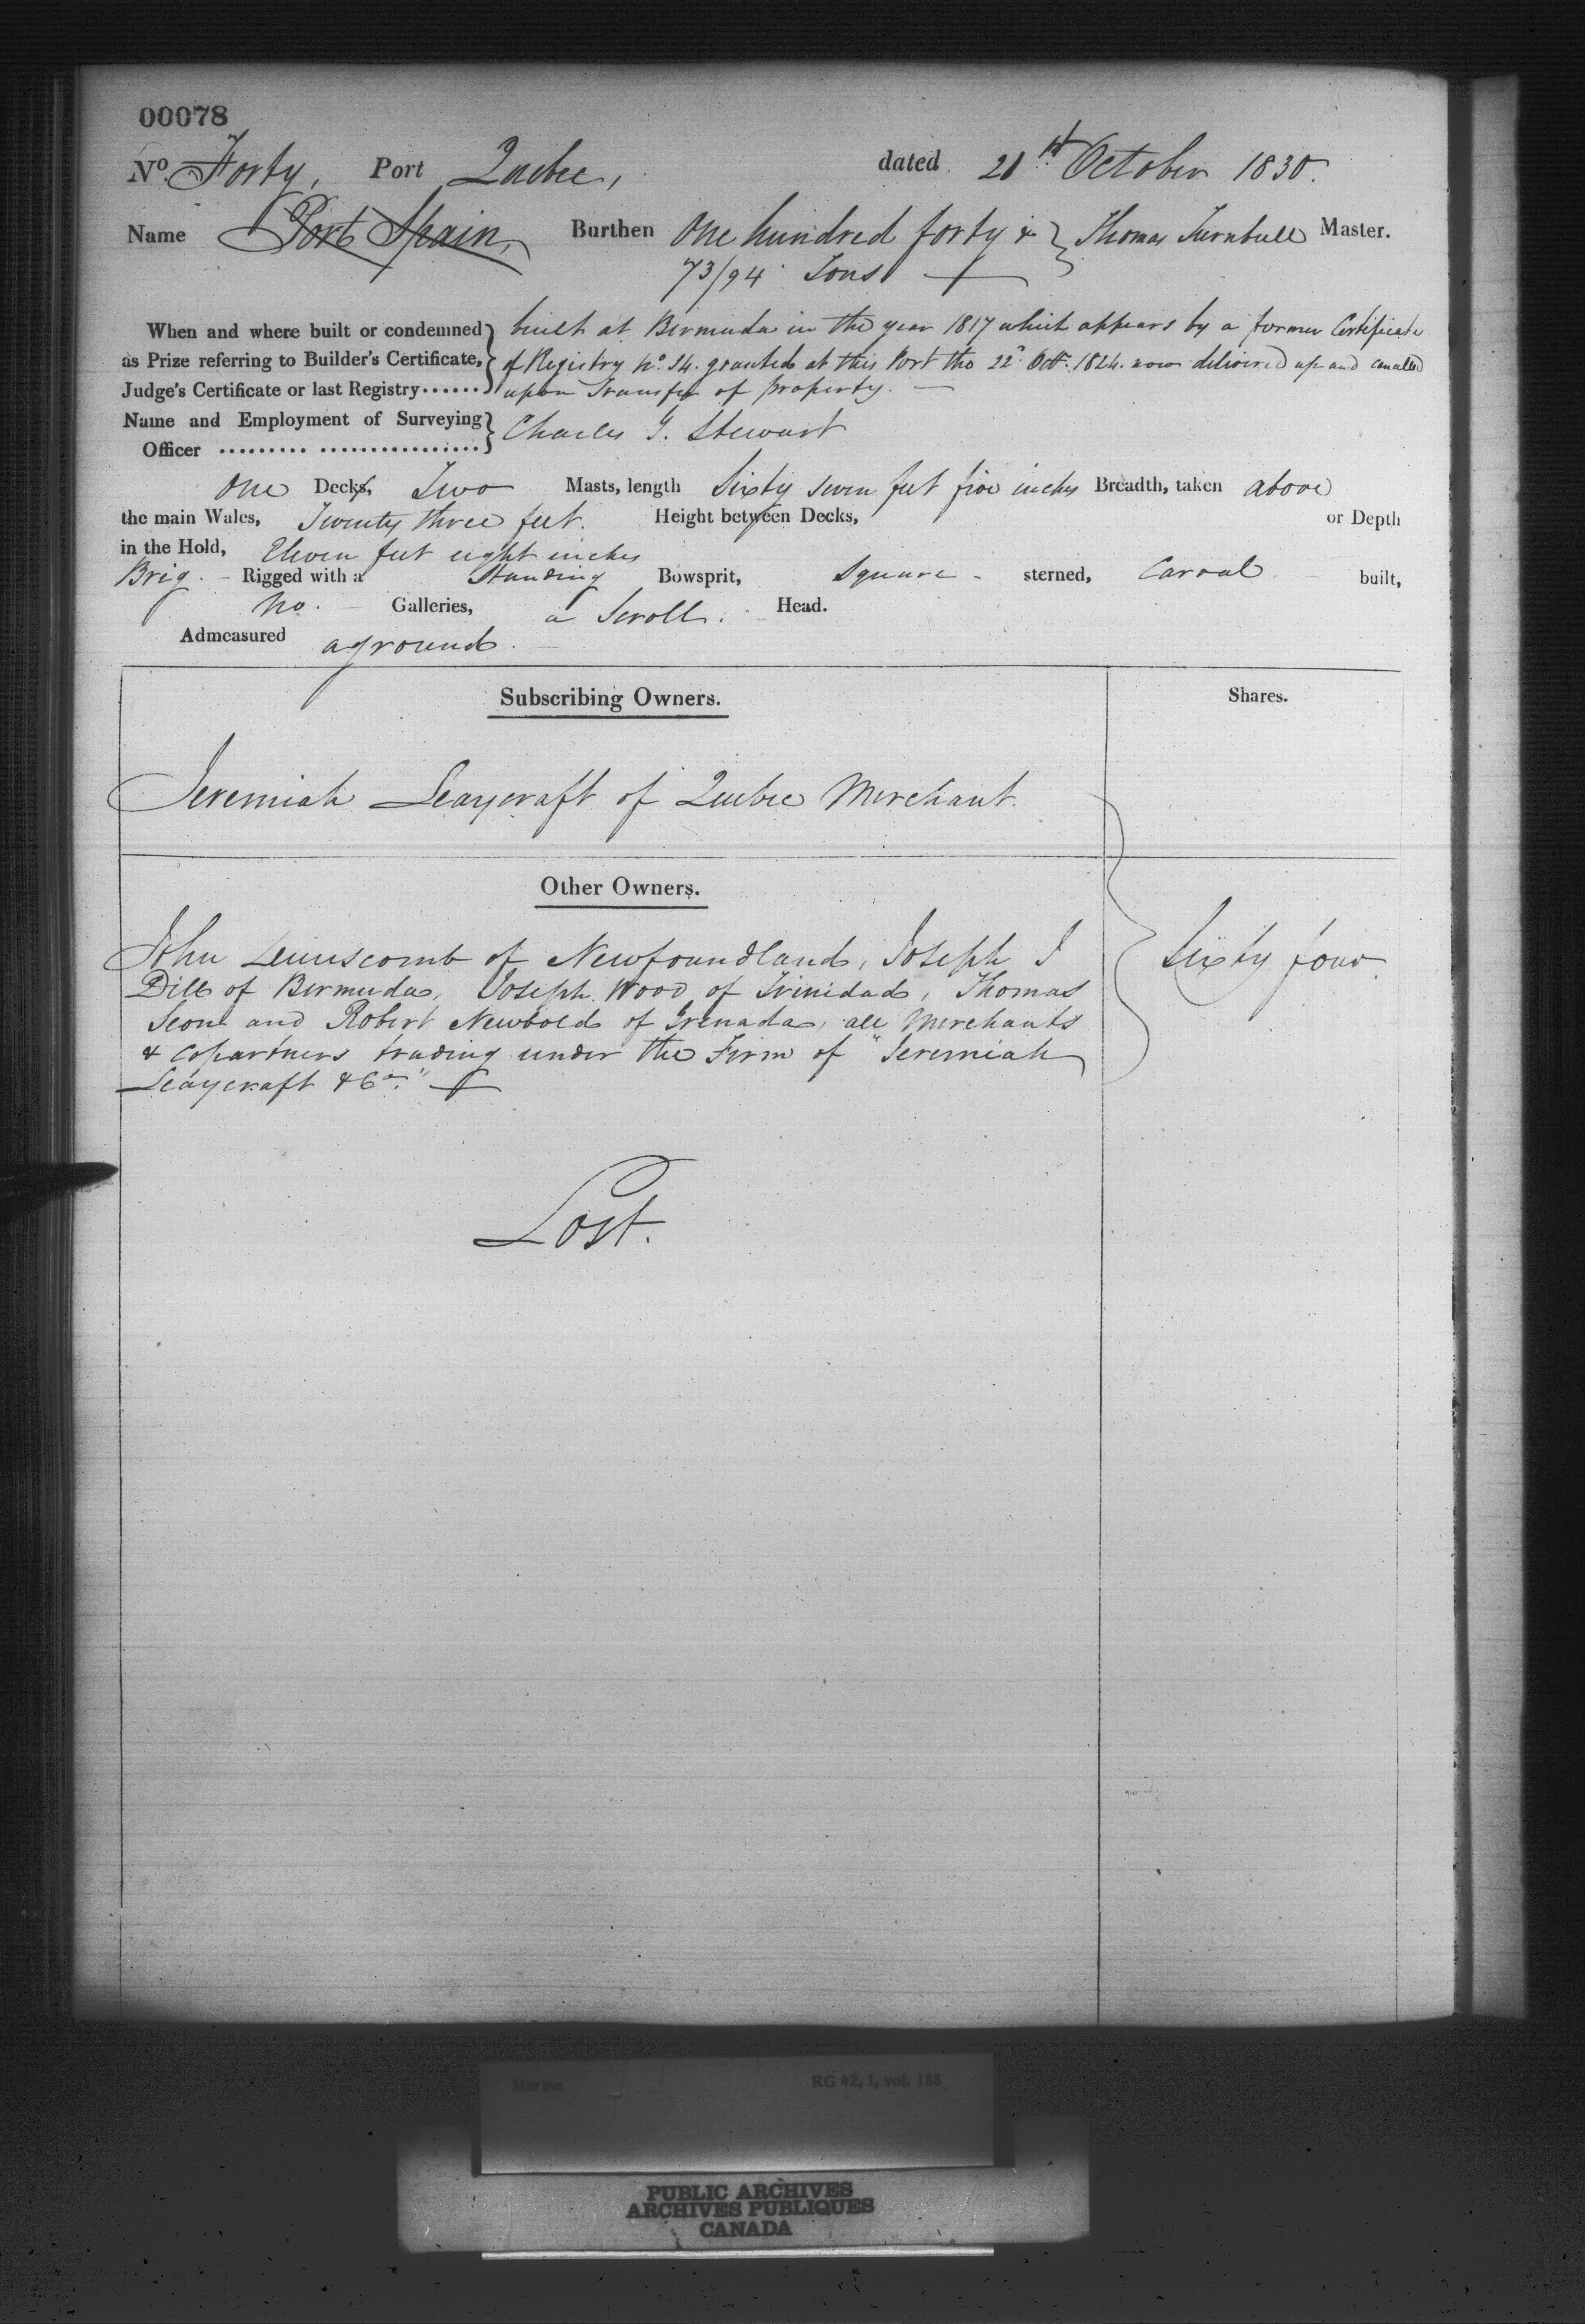 00078
No. Forty, Port Quebec, dated 21st October 1830.
Name Port Spain, Burthen One hundred forty & } Thomas Turnbull Master.
73/94 Tons
When and where built or condemned } built at Bermuda in the year 1817 which appears by a former Certificate
as Prize referring to Builder's Certificate, } of Registry No. 24. granted at this Port the 22d Octr. 1824. now delivered up and cancelled
Judge's Certificate or last Registry...... } upon Transfer of property.
Name and Employment of Surveying } Charles G. Stewart
Officer ......... ................ }
One Decks, Two Masts, length Sixty seven feet five inches Breadth, taken above
the main Wales, Twenty three feet. Height between Decks, or Depth
in the Hold, Eleven feet eight inches
Brig. Rigged with a Standing Bowsprit, Square sterned, Carval built,
No. Galleries, a Scroll. Head.
Admeasured aground.
Subscribing Owners. Shares.
Jeremiah Leaycraft of Quebec Merchant.
Other Owners.
John of Newfoundland, Joseph J Sixty four.
Dill of Bermuda, Joseph Wood of Trinidad, Thomas
and Robert Newbold of Grenada, all Merchants
& Copartners trading under the Firm of "Jeremiah
Leaycraft & Co."
Lost.
Marine RG 42, I, vol. 188
PUBLIC ARCHIVES
ARCHIVES PUBLIQUES
CANADA